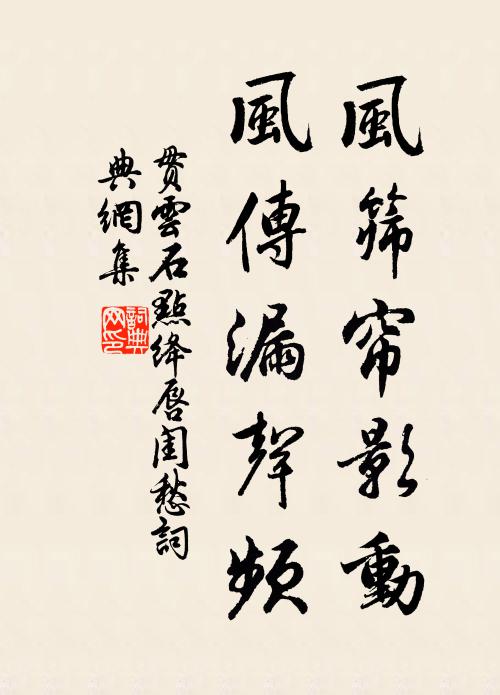 風篩帘影動
風傳漏聲頻
貫雲石點绛唇閨愁詞
典網集
詞典网印